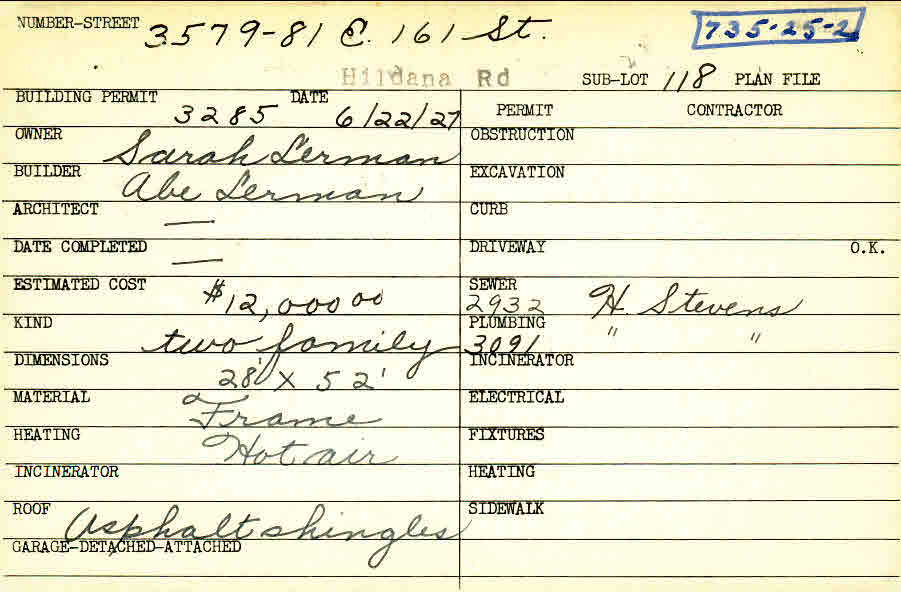 NUMBER-STREET 3579-81 E. 161 St. 735-25-2
Hildana Rd SUB-LOT 118 PLAN FILE
BUILDING PERMIT 3285 DATE 6/22/27
PERMIT CONTRACTOR
OWNER Sarah Lerman
OBSTRUCTION
BUILDER Abe Lerman
EXCAVATION
ARCHITECT —
CURB
DATE COMPLETED —
DRIVEWAY O.K.
ESTIMATED COST $12,000 00
SEWER 2932 H. Stevens
KIND two family
PLUMBING 3091 " "
DIMENSIONS 28' X 52'
INCINERATOR
MATERIAL Frame
ELECTRICAL
HEATING Hot air
FIXTURES
INCINERATOR
HEATING
ROOF Asphalt shingles
SIDEWALK
GARAGE-DETACHED-ATTACHED